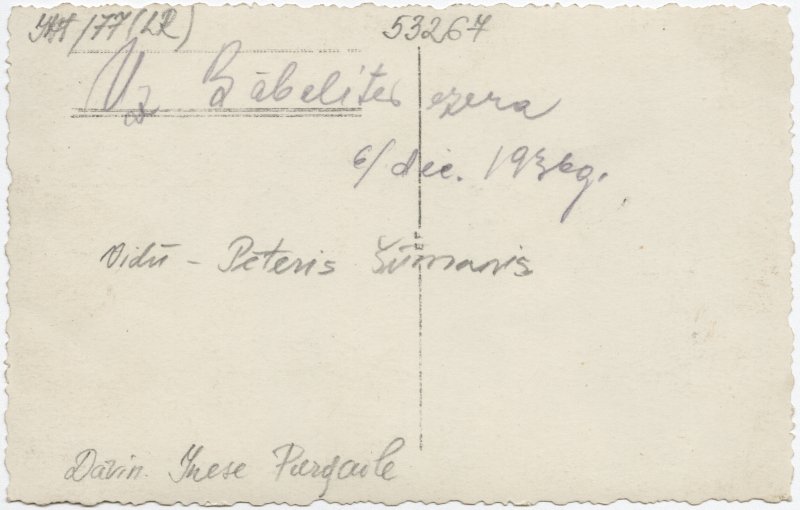 /77 (LR) 53267
Uz Bābelītes ezera
6/dec. 1936g.
Vidū - Pēteris
Dāvin. Inese Purgaile